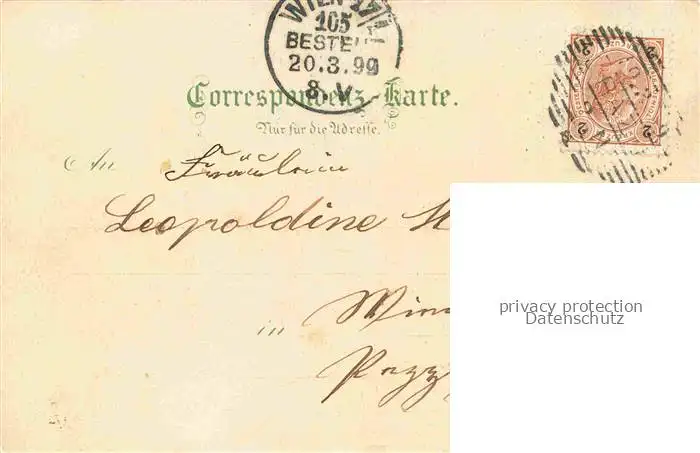 WIEN 17/1
105
BESTELLT
20.3.99
8.V
Correspondenz-Karte.
Nur für die Adresse.
An Fräulein
Leopoldine
privacy protection
Datenschutz
in Wien
2 2